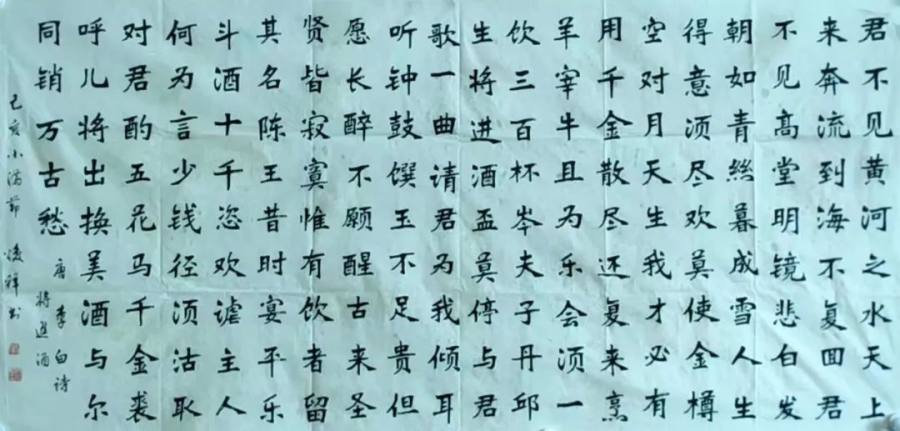 君不见黄河之水天上
来奔流到海不复囬君
不见高堂明镜悲白发
朝如青絲暮成雪人生
得意须尽欢莫使金樽
空对月天生我才必有
用千金散尽还复来烹
羊宰牛且为乐会须一
饮三百杯岑夫子丹邱
生将进酒盃莫停与君
歌一曲请君为我倾耳
听钟鼓馔玉不足贵但
愿长醉不願醒古来圣
贤皆寂寞惟有饮者留
其名陈王昔时宴平乐
斗酒十千恣欢谑主人
何为言少钱径须沽取
对君酌五花马千金裘
呼儿将出换美酒与尔
同销万古愁
唐李白诗
将进酒
己亥小满节 俊祥书